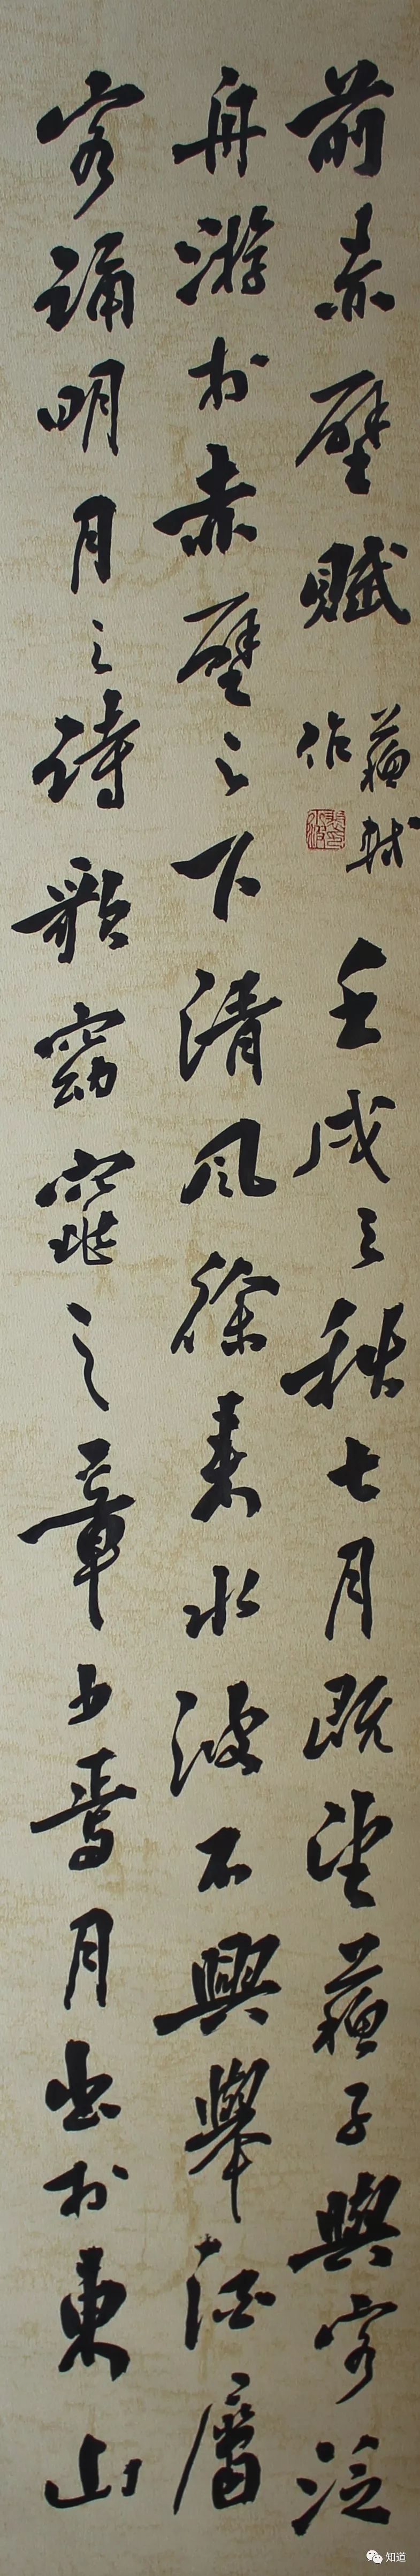 前赤壁賦
蘇軾
作
壬戌之秋七月既望蘇子與客泛
舟游於赤壁之下清風徐来水波不興舉酒屬
客誦明月之詩歌窈窕之章少焉月出於東山
知道